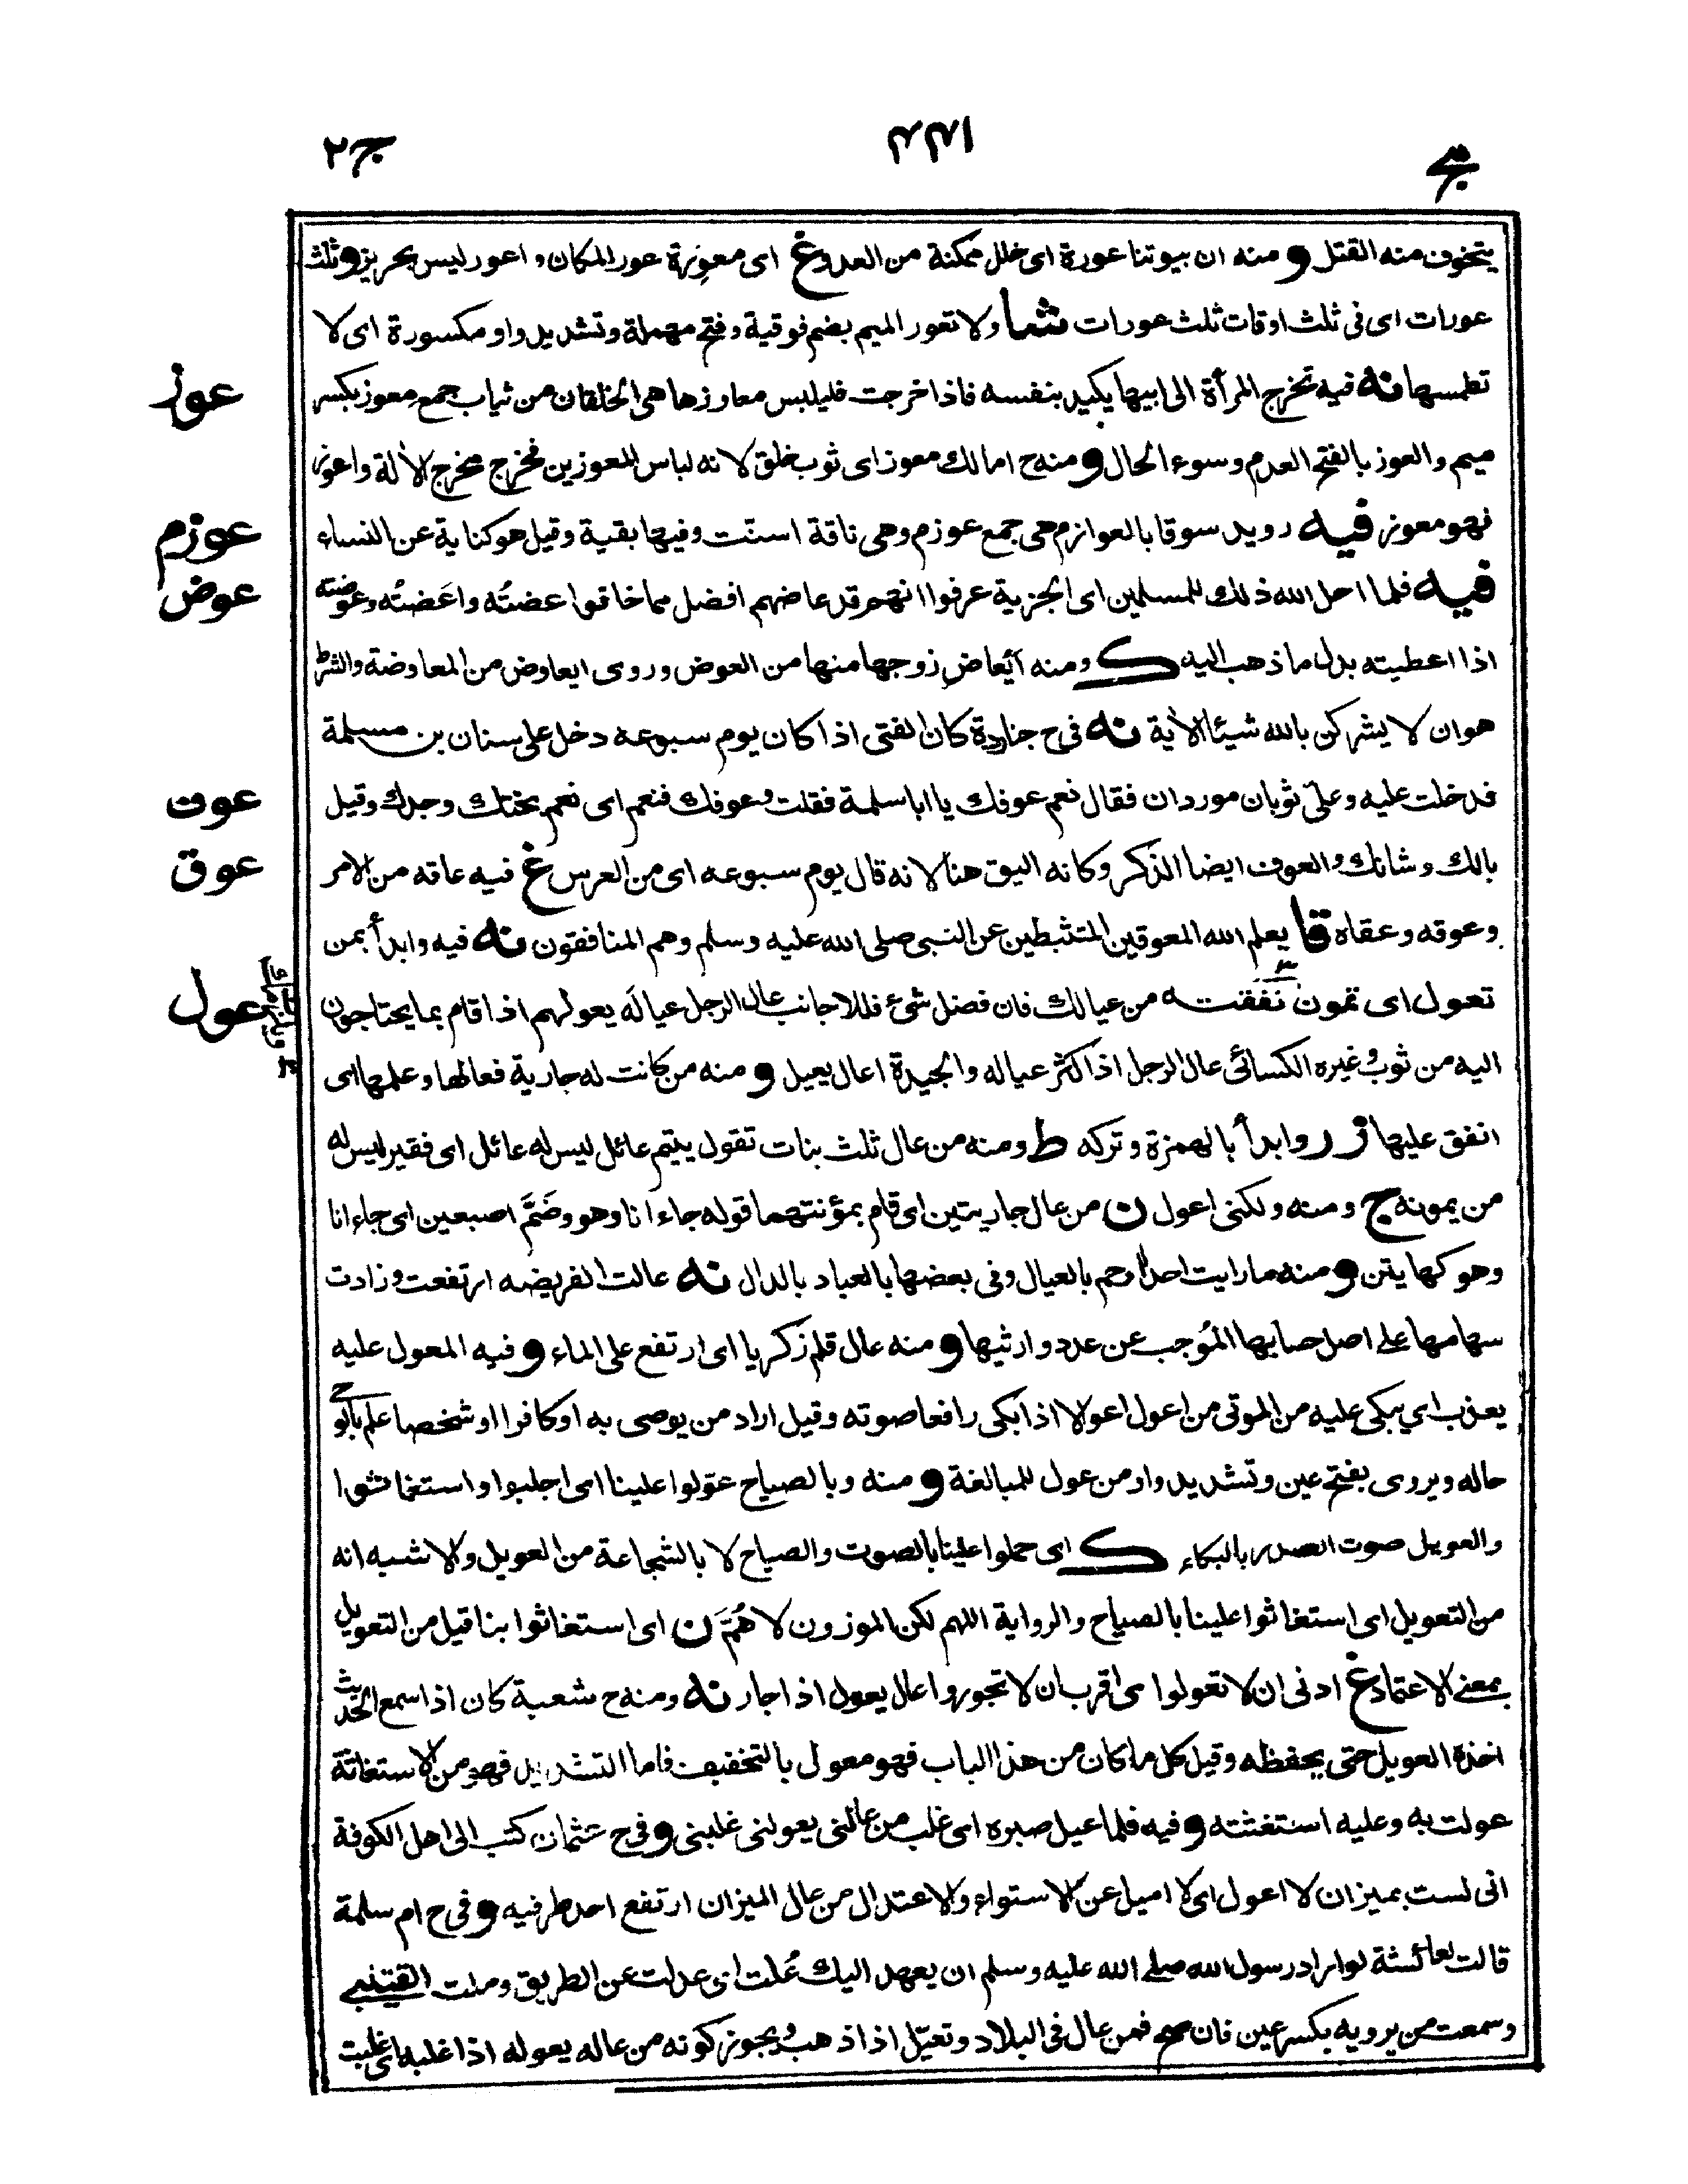 ج٢
يتخوف منه القتل و منه ان بيوتنا عورة اى خلل ممكنة من العدو غ اى معورة عور المكان و اعور ليس بحريز و ثلث
عورات اى فى ثلث اوقات ثلث عورات شما ولا تعور الميم بضم فوقية و فتح مهملة وتشديد واو مكسورة اى لا
عوز
تطمسها نه فيه تخرج المرأة الى ابيها يكيد بنفسه فاذا خرجت فليلبس معاوزها هى الخلقان من ثياب جمع معوز بكسر
ميم والعوز بالفتح العدم وسوء الحال و منه ح امالك معوز اى ثوب خلق لانه لباس المعوزين فخرج مخرج الالة واعوز
عوزم
فهو معوز فيه رويد سوقا بالعوازم هى جمع عوزم وهى ناقة اسنّت وفيها بقية وقيل هو كناية عن النساء
عوض
فيه فلما احل الله ذلك للمسلمين اى الجزية عرفوا انهم قد عاضهم افضل مما خافوا عضتُه واعَضتُه وعوضته
اذا اعطيته بدل ما ذهب اليه ك ومنه ايُعاض زوجها منها من العوض وروى ايعاوض من المعاوضة والشرط
هو ان لا يشركن بالله شيئا الاية نه فى ح جنازة كان الفتى اذا كان يوم سبوعه دخل على سنان بن مسلمة
عوف
فدخلت عليه وعلىّ ثوبان موردان فقال نعم عوفك يا ابا سلمة فقلت وعوفك فنعم اى نعم بختك وجدك وقيل
عوق
بالك وشانك والعوف ايضا الذكر وكانه اليق هنا لانه قال يوم سبوعه اى من العرس غ فيه عاقه من الامر
وعوقه وعقاه قا يعلم الله المعوقين المتثبطين عن النبى صلى الله عليه وسلم وهم المنافقون نه فيه وابدأ بمن
عول
تعول اى تمون نفقته من عيالك فان فضل شئ فللاجانب عال الرجل عياله يعولهم اذا قام بما يحتاجون
اليه من ثوب وغيره الكسائى عال الرجل اذا كثر عياله والجيدة اعال يعيل و منه من كانت له جارية فعالها وعلمها اى
انفق عليها ز ر وابدأ بالهمزة و تركه ط ومنه من عال ثلث بنات تقول يتيم عائل ليس له عائل اى فقير ليس له
من يمونه ج و منه ولكنى اعول ن من عال جاريتين اى قام بمؤنتهما قوله جاء انا وهو وضَمَّ اصبعين اى جاء انا
وهو كهاتين و منه ما رايت احدا ارحم بالعيال وفى بعضها بالعباد بالدال نه عالت الفريضه ارتفعت وزادت
سهامها على اصل حسابها المُوجب عن عدد وارثيها و منه عال قلم زكريا اى ارتفع على الماء و فيه المعول عليه
يعذب اي يبكى عليه من الموتى من اعول اعولا اذا بكى رافعا صوته وقيل اراد من يوصى به او كافرا او شخصا علم بالوحى
حاله ويروى بفتح عين وتشديد واو من عول للمبالغة و منه وبالصياح عوّلوا علينا اى اجلبوا واستغاثوا
والعويل صوت الصدر بالبكاء ك اى حملوا علينا بالصوت والصياح لا بالشجاعة من العويل والاشبه انه
من التعويل اى استغاثوا علينا بالصياح والرواية اللهم لكن الموزون لا هُمّ ن اى استغاثوا بنا قيل من التعويل
بمعنى الاعتماد غ ادنى ان لا تعولوا اى اقرب ان لا تجوروا عال يعول اذا جار نه ومنه ح شعبة كان اذا سمع الحديث
اخذه العويل حتى يحفظه وقيل كل ما كان من هذا الباب فهو معول بالتخفيف فاما التشديد فهو من الاستغاثة
عولت به وعليه استغثته و فيه فلما عيل صبره اى غلب من عالنى يعولنى غلبنى و فى ح عثمان كتب الى اهل الكوفة
انى لست بميزان لا اعول اى لا اميل عن الاستواء والاعتدال من عال الميزان ارتفع احد طرفيه و فى ح ام سلمة
قالت لعائشة لو اراد رسول الله صلى الله عليه وسلم ان يعهد اليك عُلت اى عدلت عن الطريق وملت القتيبى
وسمعت من يرويه بكسر عين فان صح فهو من عال فى البلاد وتعيّل اذا ذهب ويجوز كونه من عاله يعوله اذا غلبه اى غلبت